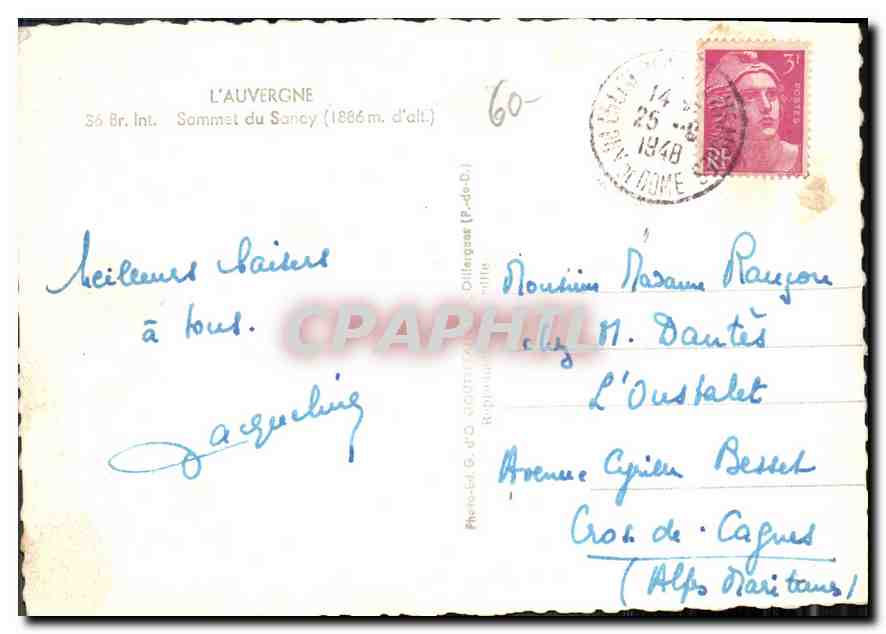 L'AUVERGNE
S6 Br. Int. Sommet du Sancy (1886 m. d'alt.)
60-
14
25
1948
DE DOME
3F
POSTES
RF
Meilleurs baisers
à tous.
Jacqueline
Photo-Ed. G. d'O
Olliergues (P.-de-D.)
CPAPHIL
Monsieur Madame Rangon
chez M. Dantès
L'Oustalet
Avenue Cyrille Besset
Cros-de-Cagnes
(Alpes Maritimes)